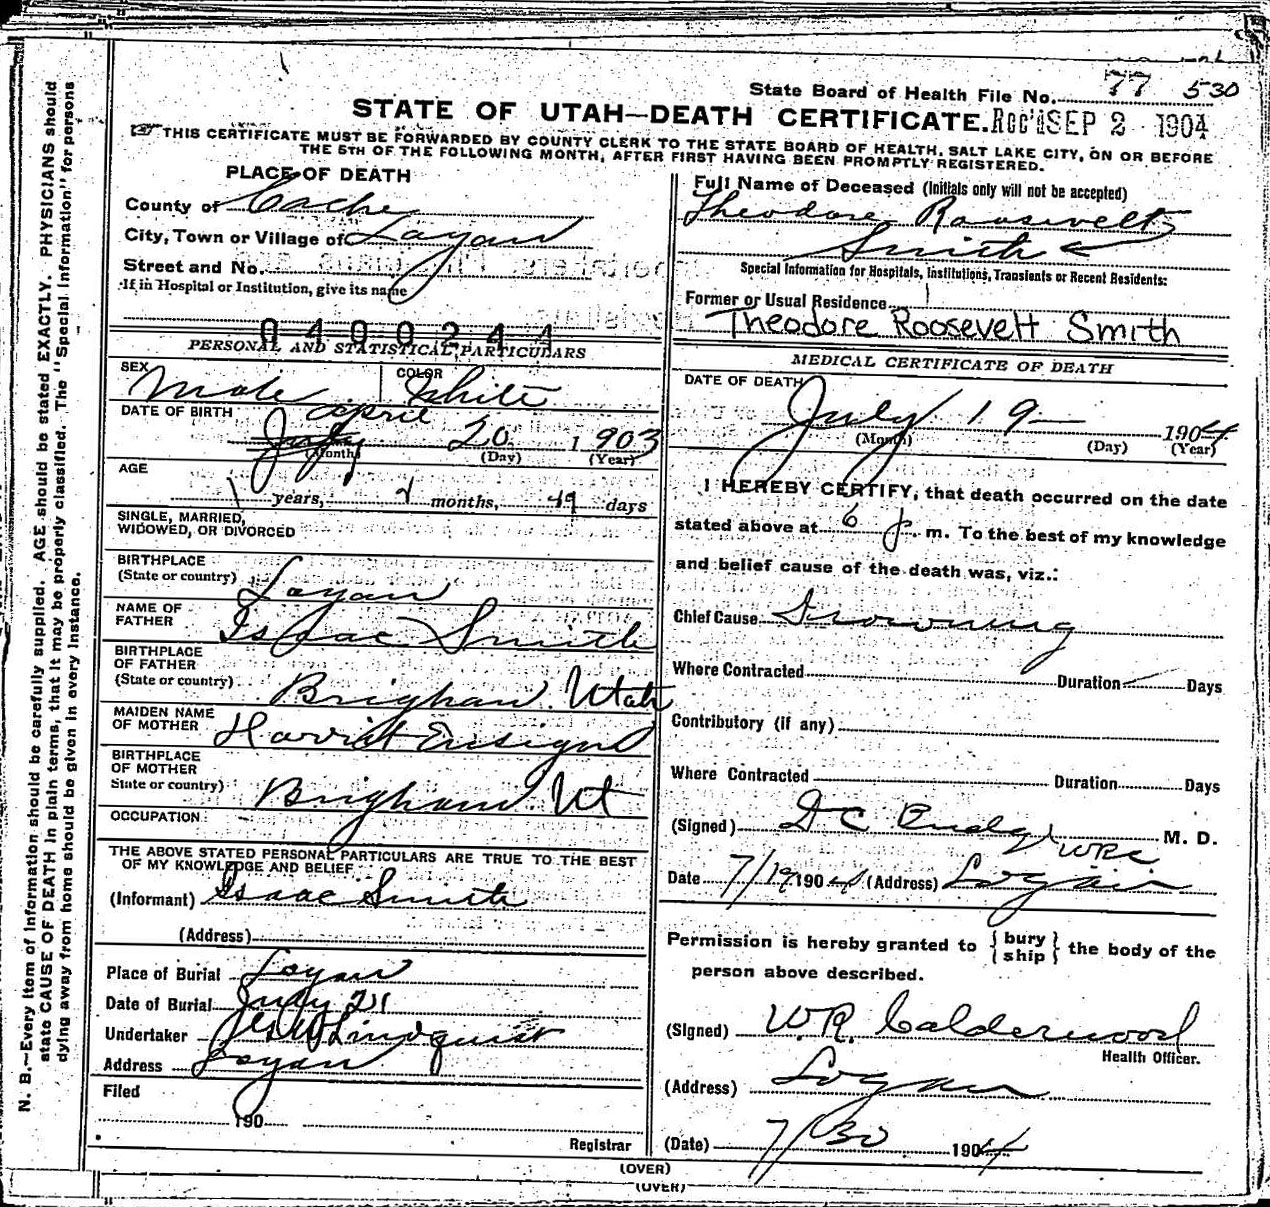 State Board of Health File No. 77 530
STATE OF UTAH—DEATH CERTIFICATE. Rec'd SEP 2 1904
THIS CERTIFICATE MUST BE FORWARDED BY COUNTY CLERK TO THE STATE BOARD OF HEALTH, SALT LAKE CITY, ON OR BEFORE
THE 5TH OF THE FOLLOWING MONTH, AFTER FIRST HAVING BEEN PROMPTLY REGISTERED.
PLACE OF DEATH
County of Cache
City, Town or Village of Logan
Street and No.
If in Hospital or Institution, give its name
0400244
PERSONAL AND STATISTICAL PARTICULARS
SEX Male COLOR White
DATE OF BIRTH April
July 20 1903
(Month) (Day) (Year)
AGE
1 years, months, days
SINGLE, MARRIED,
WIDOWED, OR DIVORCED
BIRTHPLACE
(State or country) Logan
NAME OF
FATHER Isaac Smith
BIRTHPLACE
OF FATHER
(State or country) Brigham Utah
MAIDEN NAME
OF MOTHER Harriet Ensign
BIRTHPLACE
OF MOTHER
State or country) Brigham Ut
OCCUPATION
THE ABOVE STATED PERSONAL PARTICULARS ARE TRUE TO THE BEST
OF MY KNOWLEDGE AND BELIEF
(Informant) Isaac Smith
(Address)
Place of Burial Logan
Date of Burial July 21
Undertaker Lindquist
Address Logan
Filed
190
Registrar
Full Name of Deceased (Initials only will not be accepted)
Theodore Roosevelt
Smith
Special Information for Hospitals, Institutions, Transients or Recent Residents:
Former or Usual Residence
Theodore Roosevelt Smith
MEDICAL CERTIFICATE OF DEATH
DATE OF DEATH
July 19 1904
(Month) (Day) (Year)
I HEREBY CERTIFY, that death occurred on the date
stated above at 6 p. m. To the best of my knowledge
and belief cause of the death was, viz.:
Chief Cause Drowning
Where Contracted Duration Days
Contributory (if any)
Where Contracted Duration Days
(Signed) D C Budge M. D.
WRC
Date 7/19 1904 (Address) Logan
Permission is hereby granted to { bury ship } the body of the
person above described.
(Signed) W.R. Calderwood
Health Officer.
(Address) Logan
(Date) 7/30 1904
(OVER)
(OVER)
N. B.—Every item of information should be carefully supplied. AGE should be stated EXACTLY. PHYSICIANS should
state CAUSE OF DEATH in plain terms, that it may be properly classified. The "Special Information" for persons
dying away from home should be given in every instance.